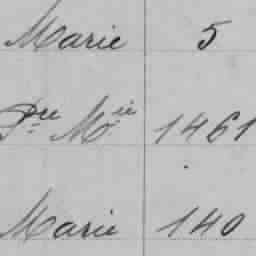 Marie 5
Dlle Mie 1461
Marie 140